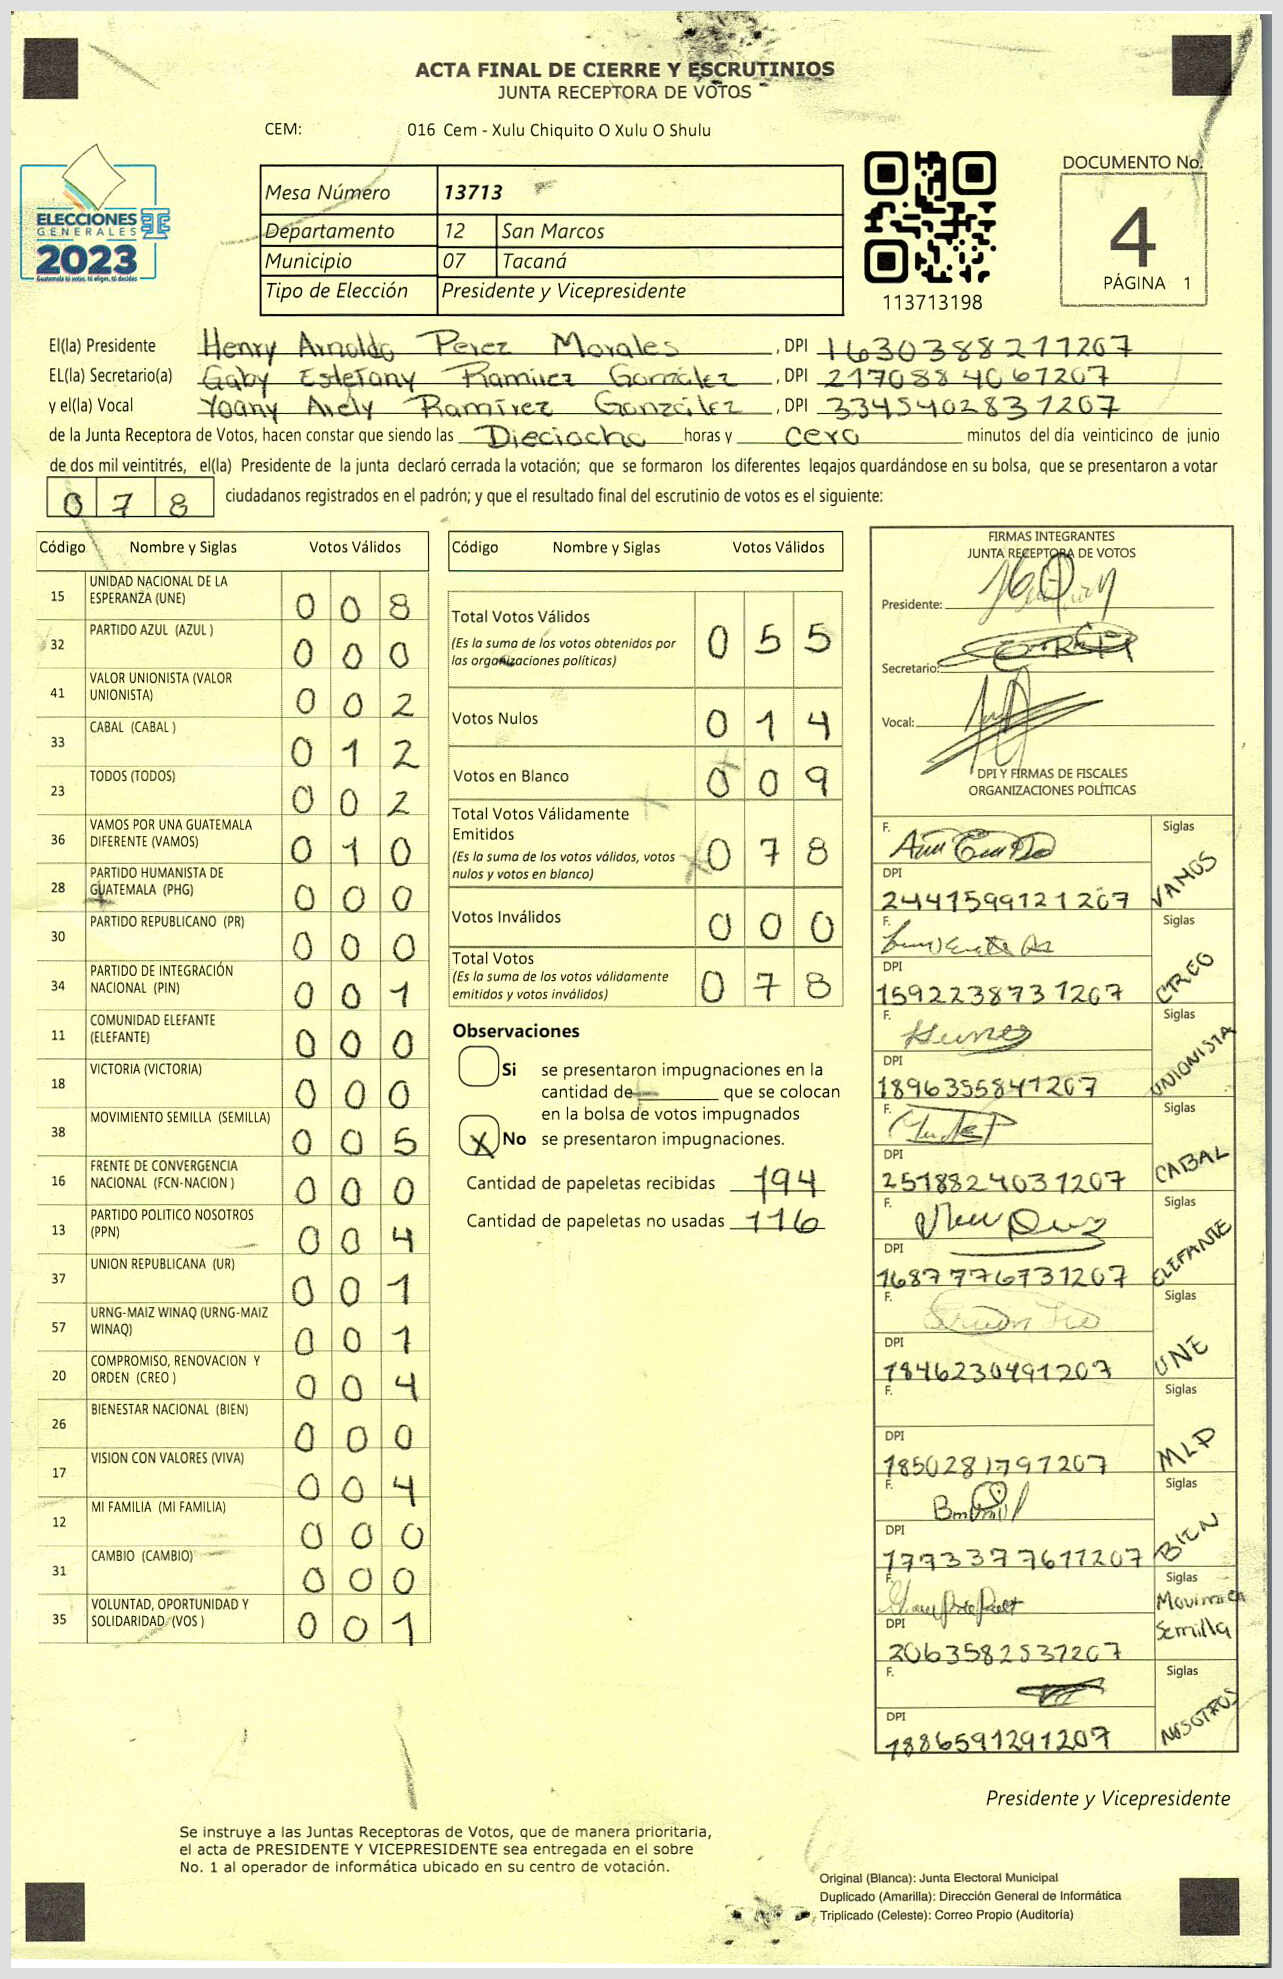 ACTA FINAL DE CIERRE Y ESCRUTINIOS
JUNTA RECEPTORA DE VOTOS
CEM: 016 Cem - Xulu Chiquito O Xulu O Shulu
ELECCIONES
GENERALES
2023
Guatemala tú votas, tú eliges, tú decides
Mesa Número 13713
Departamento 12 San Marcos
Municipio 07 Tacaná
Tipo de Elección Presidente y Vicepresidente
113713198
DOCUMENTO No.
4
PÁGINA 1
El(la) Presidente Henry Arnoldo Perez Morales , DPI 1630388211207
EL(la) Secretario(a) Gaby Estefany Ramirez González , DPI 2170884061207
y el(la) Vocal Yoany Arely Ramírez González , DPI 3345402831207
de la Junta Receptora de Votos, hacen constar que siendo las Dieciocho horas y cero minutos del día veinticinco de junio
de dos mil veintitrés, el(la) Presidente de la junta declaró cerrada la votación; que se formaron los diferentes legajos quardándose en su bolsa, que se presentaron a votar
078 ciudadanos registrados en el padrón; y que el resultado final del escrutinio de votos es el siguiente:
Código Nombre y Siglas Votos Válidos
15 UNIDAD NACIONAL DE LA ESPERANZA (UNE) 008
32 PARTIDO AZUL (AZUL ) 000
41 VALOR UNIONISTA (VALOR UNIONISTA) 002
33 CABAL (CABAL ) 012
23 TODOS (TODOS) 002
36 VAMOS POR UNA GUATEMALA DIFERENTE (VAMOS) 010
28 PARTIDO HUMANISTA DE GUATEMALA (PHG) 000
30 PARTIDO REPUBLICANO (PR) 000
34 PARTIDO DE INTEGRACIÓN NACIONAL (PIN) 001
11 COMUNIDAD ELEFANTE (ELEFANTE) 000
18 VICTORIA (VICTORIA) 000
38 MOVIMIENTO SEMILLA (SEMILLA) 005
16 FRENTE DE CONVERGENCIA NACIONAL (FCN-NACION ) 000
13 PARTIDO POLITICO NOSOTROS (PPN) 004
37 UNION REPUBLICANA (UR) 001
57 URNG-MAIZ WINAQ (URNG-MAIZ WINAQ) 001
20 COMPROMISO, RENOVACION Y ORDEN (CREO ) 004
26 BIENESTAR NACIONAL (BIEN) 000
17 VISION CON VALORES (VIVA) 004
12 MI FAMILIA (MI FAMILIA) 000
31 CAMBIO (CAMBIO) 000
35 VOLUNTAD, OPORTUNIDAD Y SOLIDARIDAD (VOS ) 001
Código Nombre y Siglas Votos Válidos
Total Votos Válidos 055
(Es la suma de los votos obtenidos por
las organizaciones políticas)
Votos Nulos 014
Votos en Blanco 009
Total Votos Válidamente
Emitidos 078
(Es la suma de los votos válidos, votos
nulos y votos en blanco)
Votos Inválidos 000
Total Votos 078
(Es la suma de los votos válidamente
emitidos y votos inválidos)
Observaciones
Si se presentaron impugnaciones en la
cantidad de que se colocan
en la bolsa de votos impugnados
X No se presentaron impugnaciones.
Cantidad de papeletas recibidas 194
Cantidad de papeletas no usadas 116
FIRMAS INTEGRANTES
JUNTA RECEPTORA DE VOTOS
Presidente:
Secretario:
Vocal:
DPI Y FIRMAS DE FISCALES
ORGANIZACIONES POLÍTICAS
F. Siglas
DPI VAMOS
2441599121207
F. Siglas
DPI CREO
1592238731207
F. Siglas
DPI UNIONISTA
1896355841207
F. Siglas
DPI CABAL
2518824031207
F. Siglas
DPI ELEFANTE
1687776731207
F. Siglas
DPI UNE
1846230491207
F. Siglas
DPI MLP
1850281791207
F. Siglas
DPI BIEN
1773377611207
F. Siglas
DPI Semilla
2063582531207
F. Siglas
DPI NOSOTROS
1886591291207
Presidente y Vicepresidente
Se instruye a las Juntas Receptoras de Votos, que de manera prioritaria,
el acta de PRESIDENTE Y VICEPRESIDENTE sea entregada en el sobre
No. 1 al operador de informática ubicado en su centro de votación.
Original (Blanca): Junta Electoral Municipal
Duplicado (Amarilla): Dirección General de Informática
Triplicado (Celeste): Correo Propio (Auditoría)